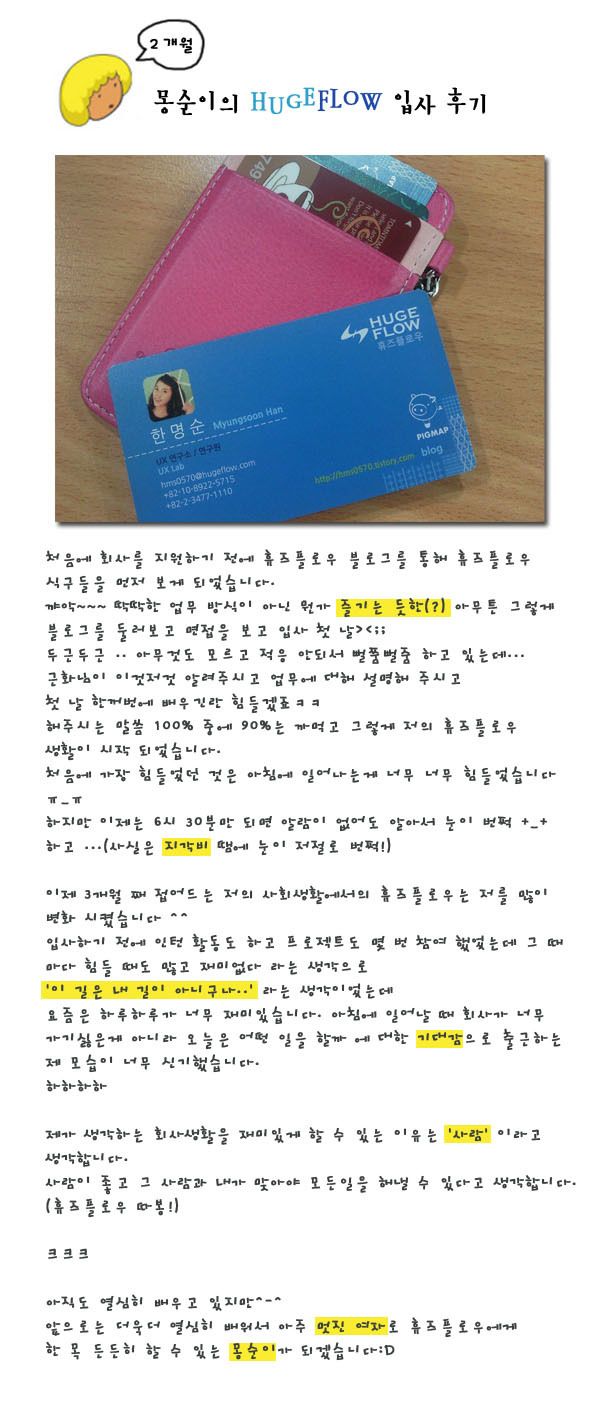 2개월
몽순이의 HUGEFLOW 입사 후기
749
HUGE
FLOW
휴즈플로우
한명순 Myungsoon Han
PIGMAP
UX 연구소 / 연구원
UX Lab
blog
http://hms0570.tistory.com
hms0570@hugeflow.com
+82-10-8922-5715
+82-2-3477-1110
처음에 회사를 지원하기 전에 휴즈플로우 블로그를 통해 휴즈플로우
식구들을 먼저 보게 되었습니다.
꺄악~~~ 딱딱한 업무 방식이 아닌 뭔가 즐기는 듯한(?) 아무튼 그렇게
블로그를 둘러보고 면접을 보고 입사 첫 날><;;
두근두근 .. 아무것도 모르고 적응 안되서 뻘쭘뻘줌 하고 있는데...
근화님이 이것저것 알려주시고 업무에 대해 설명해 주시고
첫 날 한꺼번에 배우긴란 힘들겠죠ㅋㅋ
해주시는 말씀 100% 중에 90%는 까먹고 그렇게 저의 휴즈플로우
생활이 시작 되었습니다.
처음에 가장 힘들었던 것은 아침에 일어나는게 너무 너무 힘들었습니다
ㅠ_ㅠ
하지만 이제는 6시 30분만 되면 알람이 없어도 알아서 눈이 번쩍 +_+
하고 ...(사실은 지각비 땜에 눈이 저절로 번쩍!)
이제 3개월 째 접어드는 저의 사회생활에서의 휴즈플로우는 저를 많이
변화 시켰습니다 ^^
입사하기 전에 인턴 활동도 하고 프로젝트도 몇 번 참여 했었는데 그 때
마다 힘들 때도 많고 재미없다 라는 생각으로
'이 길은 내 길이 아니구나..' 라는 생각이었는데
요즘은 하루하루가 너무 재미있습니다. 아침에 일어날 때 회사가 너무
가기싫은게 아니라 오늘은 어떤 일을 할까 에 대한 기대감으로 출근하는
제 모습이 너무 신기했습니다.
하하하하
제가 생각하는 회사생활을 재미있게 할 수 있는 이유는 '사람' 이라고
생각합니다.
사람이 좋고 그 사람과 내가 맞아야 모든일을 해낼 수 있다고 생각합니다.
(휴즈플로우 따봉!)
크크크
아직도 열심히 배우고 있지만^-^
앞으로는 더욱더 열심히 배워서 아주 멋진 여자로 휴즈플로우에게
한 목 든든히 할 수 있는 몽순이가 되겠습니다:D